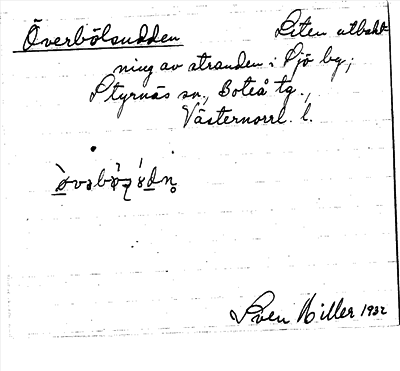 Överbölsudden Liten utbukt-
ning av stranden i Sjö by,
Styrnäs sn., Boteå tg.,
Västernorrl. l.
Sven Hiller 1932